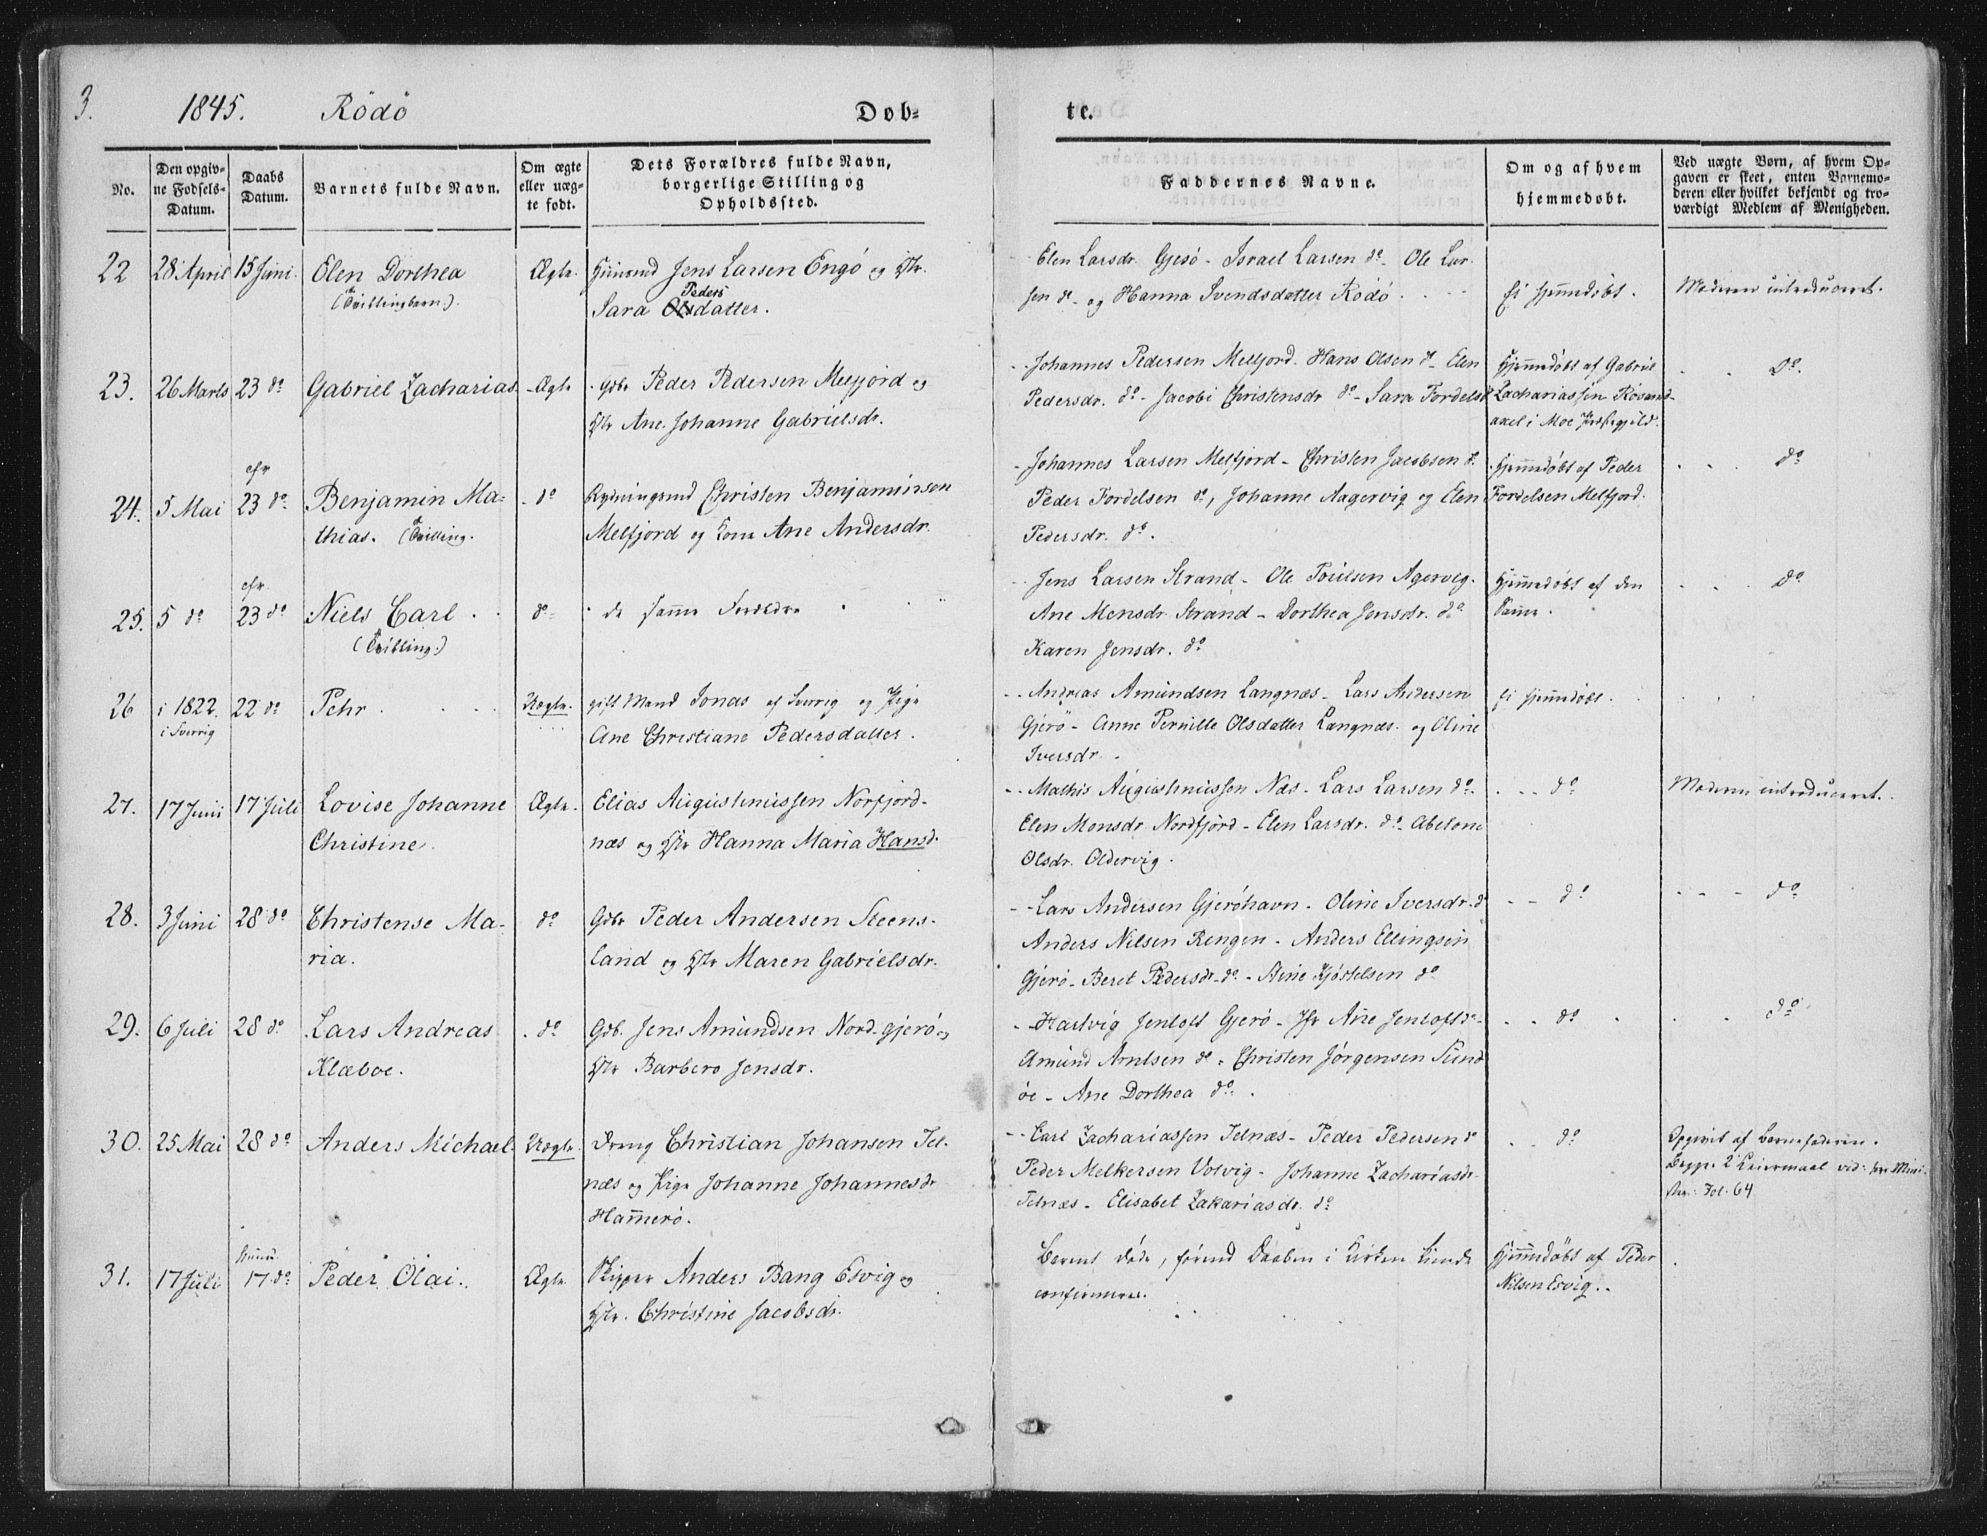 3.
1845. Rödö
Dob-
te.
No.
Den opgiv-
ne Fødsels-
Datum.
Daabs
Datum.
Barnets fulde Navn.
Om ægte
eller uæg-
te født.
Dets Forældres fulde Navn,
borgerlige Stilling og
Opholdssted.
Faddernes Navne.
Om og af hvem
hjemmedøbt.
Ved uægte Børn, af hvem Op-
gaven er skeet, enten Barnemo-
deren eller hvilket bekjendt og tro-
værdigt Medlem af Menigheden.
22 28 April 15 Juni. Elen Dorthea
(Tvillingbarn.)
Ægte. Huusmd Jens Larsen Engö og Hr.
Peders
Sara datter.
Elen Larsdr. Gjesö - Israel Larsen do - Ole Lar-
sen do - og Hanna Svendsdatter Rödö
Ei hjemmedøbt.
Moderen introduceret.
23. 26 Marts 23 do Gabriel Zacharias. Ægte
Gdbr Peder Pedersen Melfjord og
Hr Ane Johanne Gabrielsdr.
Johannes Pedersen Melfjord. Hans Olsen do - Elen
Pedersdr. do - Jacobi Christensdr do - Sara Fordels
Hjemmedøbt af Gabriel
Zachariassen Rösand-
axel i Moe Præstegjeld.
Do.
24. 5 Mai
cfr
23 do Benjamin Ma-
thias. (Tvilling.
do
Rydningsmd Christen Benjaminsen
Melfjord og Kone Ane Andersdr.
Johannes Larsen Melfjord - Christen Jacobsen do
Peder Fordelsen do, Johanne Aagervig og Elen
Pedersdr. do.
Hjemmedøbt af Peder
Fordelsen Melfjord.
do
25. 5 do
cfr.
23 do Niels Carl
(Tvilling.)
do
de samme Forældre
Jens Larsen Strand - Ole Poulsen Agervig.
Ane Mensdr Strand - Dorthea Jensdr. do
Karen Jensdr. do
Hjemmedøbt af den
Samme.
do
26 i 1822.
i Sverrig
22 do Pehr. Uægte.
gift Mand Jonas af Sverrig og Pige
Ane Christiane Pedersdatter.
Andreas Amundsen Langnæs - Lars Andersen
Gjerö - Anne Pernille Olsdatter Langnæs. og Oline
Iversdr.
Ei hjemmedøbt.
27. 17 Juni 17 Juli Lovise Johanne
Christine.
Ægte.
Elias Augustinussen Norfjord-
næs og Hr Hanna Maria Hansd.
Mathis Augustinussen Næs - Lars Larsen do.
Elen Monsdr Nordfjord - Elen Larsdr. do - Abelone
Olsdr. Oldervig.
do
Moderen introduceret.
28. 3 Juni 28 do Christense Ma-
ria.
do
Gdbr Peder Andersen Steens-
land og Hr Maren Gabrielsdr.
Lars Andersen Gjeröhavn - Oline Iversdr. do
Anders Nilsen Rengen - Anders Ellingsen
Gjerö - Beret Pedersdr do - Ane Kjöstelsen do
do
do
29. 6 Juli 28 do Lars Andreas
Klæboe.
do
Gdb. Jens Amundsen Nord-gjerö og
Hr Barbero Jensdr.
Hartvig Jentoft Gjerö - Jfr Ane Jentoft do-
Amund Arntsen do - Christen Jörgensen Sund-
öe - Ane Dorthea do.
do
do
30. 25 Mai 28 do Anders Michael. Uægte.
Dreng Christian Johansen Tel-
næs og Pige Johanne Johannesdr
Hammerö.
Carl Zachariassen Telnæs - Peder Pedersen do
Peder Melkersen Volvig - Johanne Zachariasdr
Telnæs - Elisabet Zakariasdr. do
do
Opgivet af Barnefaderen.
Begge 2 Leiermaal vid:
Fol. 64
31. 17 Juli 17 do Peder Olai. Ægte.
Skipper Anders Bang Esvig og
Hr. Christine Jacobsdr.
Barnet døde, førend Daaben i Kirken kunde
confirmeres.
Hjemmedøbt af Peder
Nilsen Esvig.